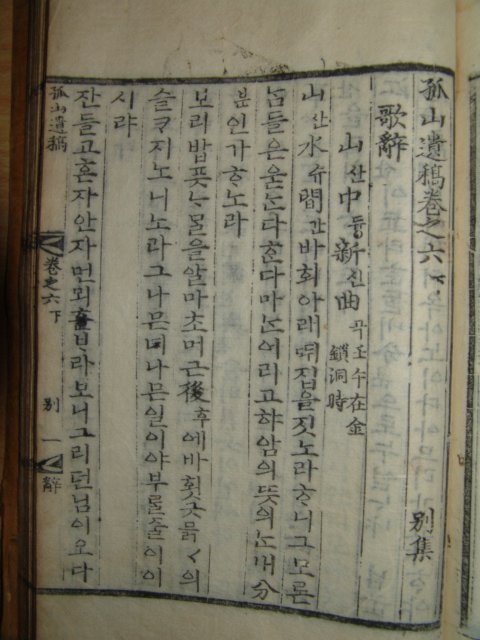 孤山遺稿卷之六 下 別集
歌辭
山산中듕新신曲곡 至午在金
鎖洞時
山산水슈間간바회아래뛰집을짓노라ᄒᆞ니그모론
ᄂᆞᆷ들은욷ᄂᆞᆫ다ᄒᆞᆫ다마ᄂᆞᆫ어리고햐암의ᄯᅳᆺ의ᄂᆞᆫ내分
분인가ᄒᆞ노라
보리밥픗ᄂᆞ물을알마초머근後후에바횟긋믉ᄀᆞ의
슬ᄏᆞ지노니노라그나믄녀나믄일이야부ᄅᆞᆯ줄이이
시랴
잔들고혼자안자먼뫼흘ᄇᆞ라보니그리던님이오다
孤山遺稿 卷之六 下 別 一 辭